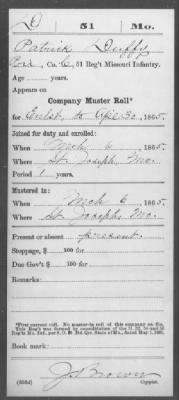 D 51 Mo.
Patrick Duffy
Co. C, 51 Reg't Missouri Infantry.
Age years.
Appears on
Company Muster Roll*
for Enlst. to Apl 30, 1865.
Joined for duty and enrolled:
When Mch 6, 1865.
Where St. Joseph, Mo.
Period 1 years.
Mustered in:
When Mch 6, 1865.
Where St. Joseph, Mo.
Present or absent present.
Stoppage, $ 100 for
Due Gov't $ 100 for
Remarks:
*First payroll. No muster-in roll of this company on file.
Book mark:
J. Brown
Copyist.